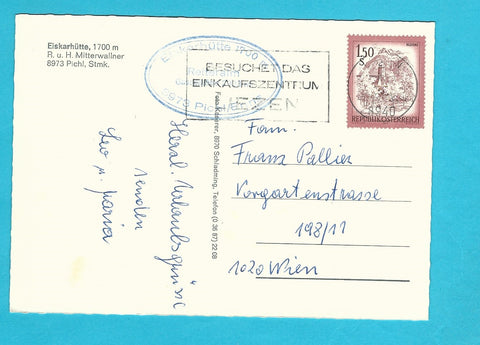 Eiskarhütte, 1700 m
R. u. H. Mitterwallner
8973 Pichl, Stmk.
Eiskarhütte 1700
8973 Pichl
BESUCHET DAS
EINKAUFSZENTRUM
LIEZEN
8940
1.50
S
REPUBLIK ÖSTERREICH
Herzl. Urlaubsgrüsse
senden
Leo u. Maria
8970 Schladming, Telefon (0 36 87) 22 08
Fam.
Franz Pallier
Vorgartenstrasse
198/11
1020 Wien